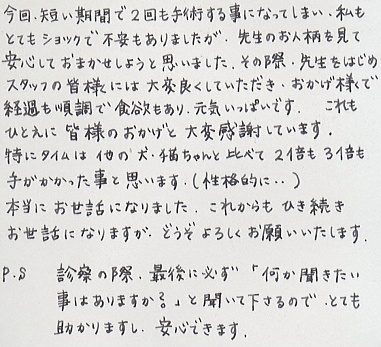 今回、短い期間で2回も手術する事になってしまい、私も
とてもショックで不安もありましたが、先生のお人柄を見て
安心しておまかせしようと思いました。その際、先生をはじめ
スタッフの皆様には大変良くしていただき、おかげ様で
経過も順調で食欲もあり、元気いっぱいです。 これも
ひとえに皆様のおかげと大変感謝しています。
特にタイムは他の犬・猫ちゃんと比べて2倍も3倍も
手がかかった事と思います。(性格的に‥)
本当にお世話になりました。これからもひき続き
お世話になりますが、どうぞよろしくお願いいたします。
P.S 診察の際、最後に必ず「何か聞きたい
事はありますか？」と聞いて下さるので、とても
助かりますし、安心できます。